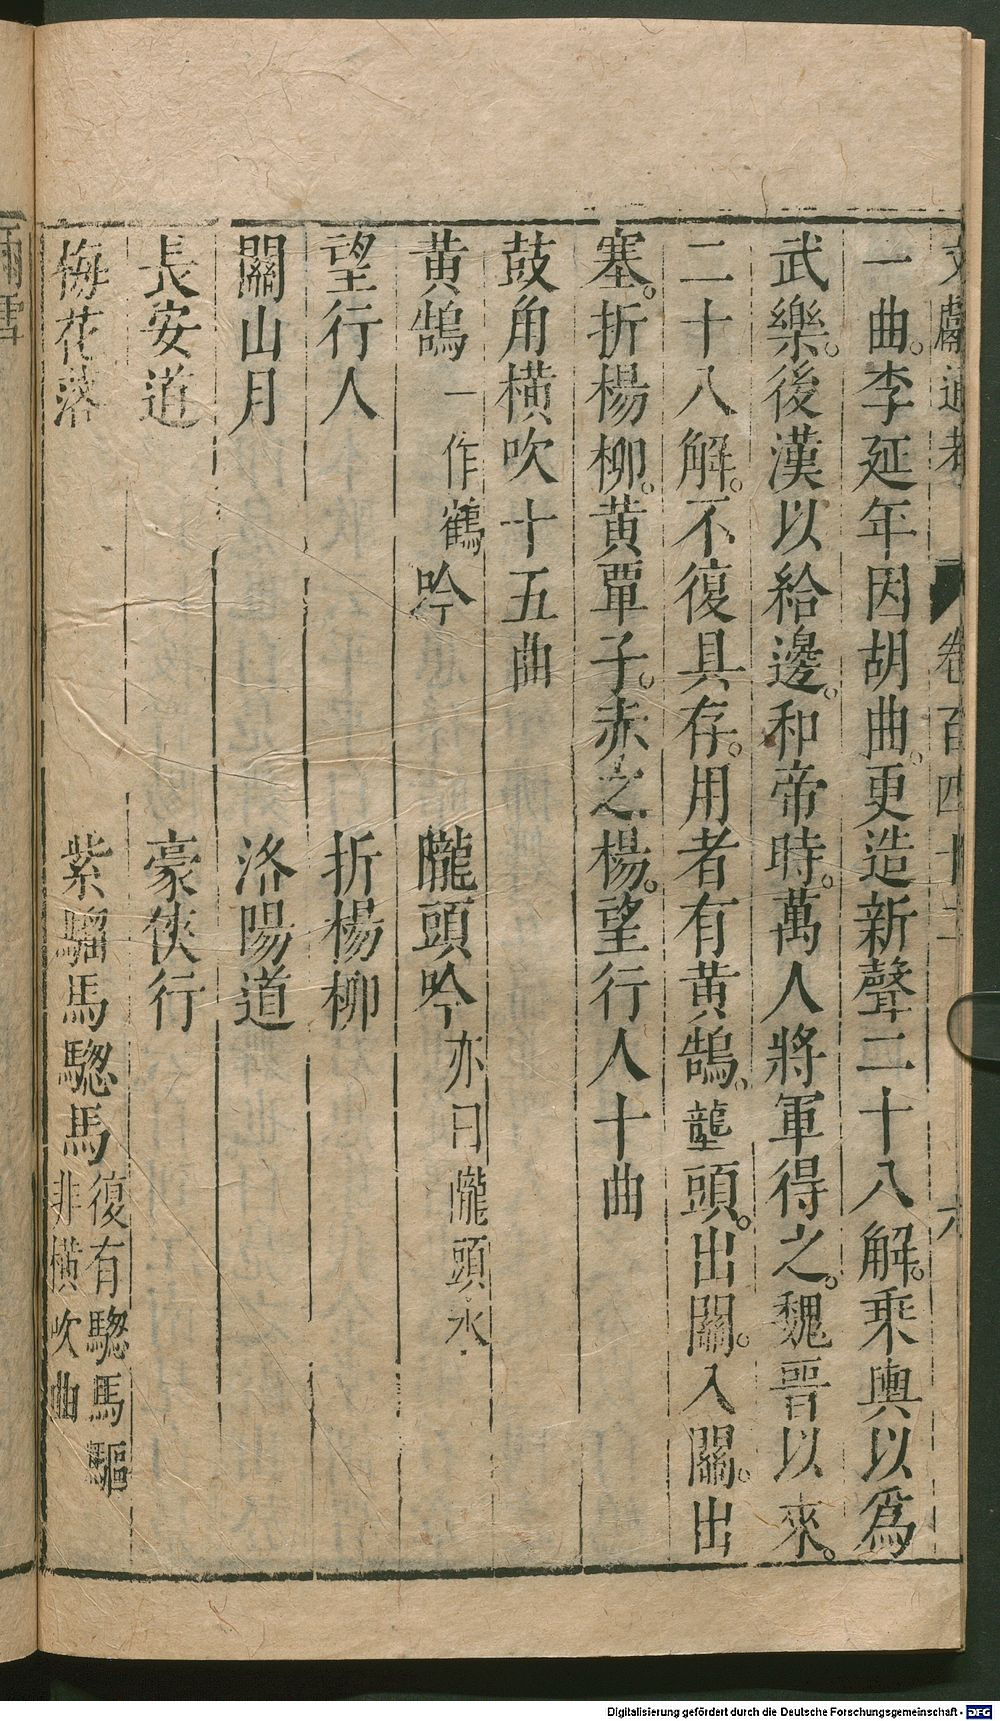 文獻通考 卷百四十二 六
一曲。李延年因胡曲。更造新聲二十八解。乘輿以爲
武樂。後漢以給邊。和帝時。萬人將軍得之。魏晉以來。
二十八解。不復具存。用者有黄鵠。壟頭。出關。入關。出
塞。折楊柳。黄覃子。赤之楊。望行人十曲
鼓角橫吹十五曲
黄鵠一作鶴吟 隴頭吟亦曰隴頭水
望行人 折楊柳
關山月 洛陽道
長安道 豪俠行
梅花落 紫騮馬驄馬復有驄馬驅非橫吹曲
Digitalisierung gefördert durch die Deutsche Forschungsgemeinschaft - DFG